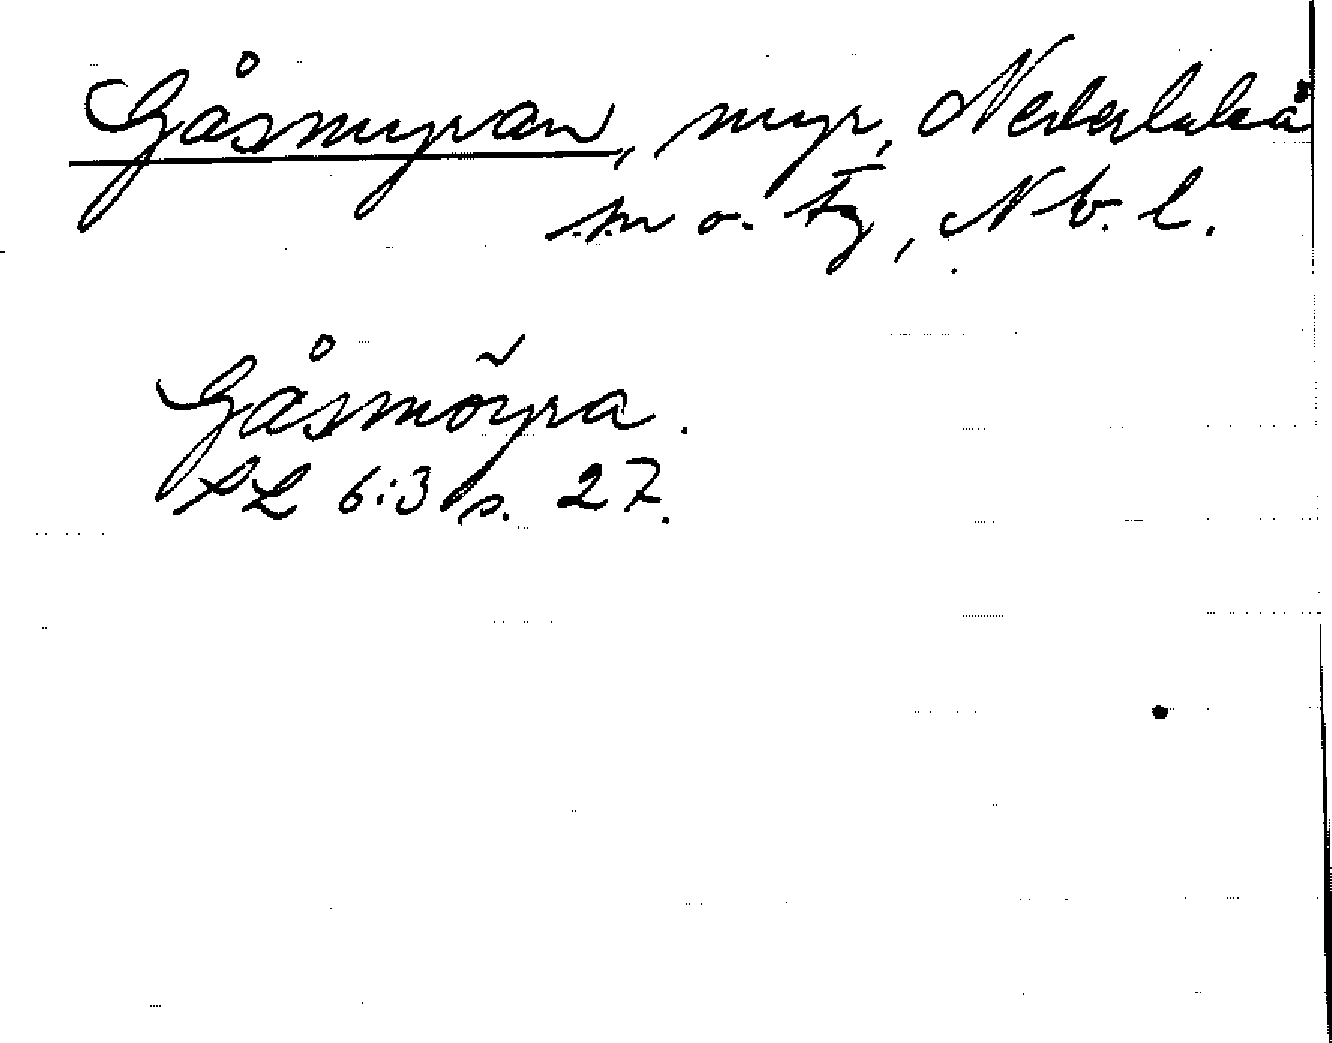 Gåsmyran, myr, Nederluleå
sn o. tg, Nb. l.
Gåsmöyra.
SL 6:3 s. 27.